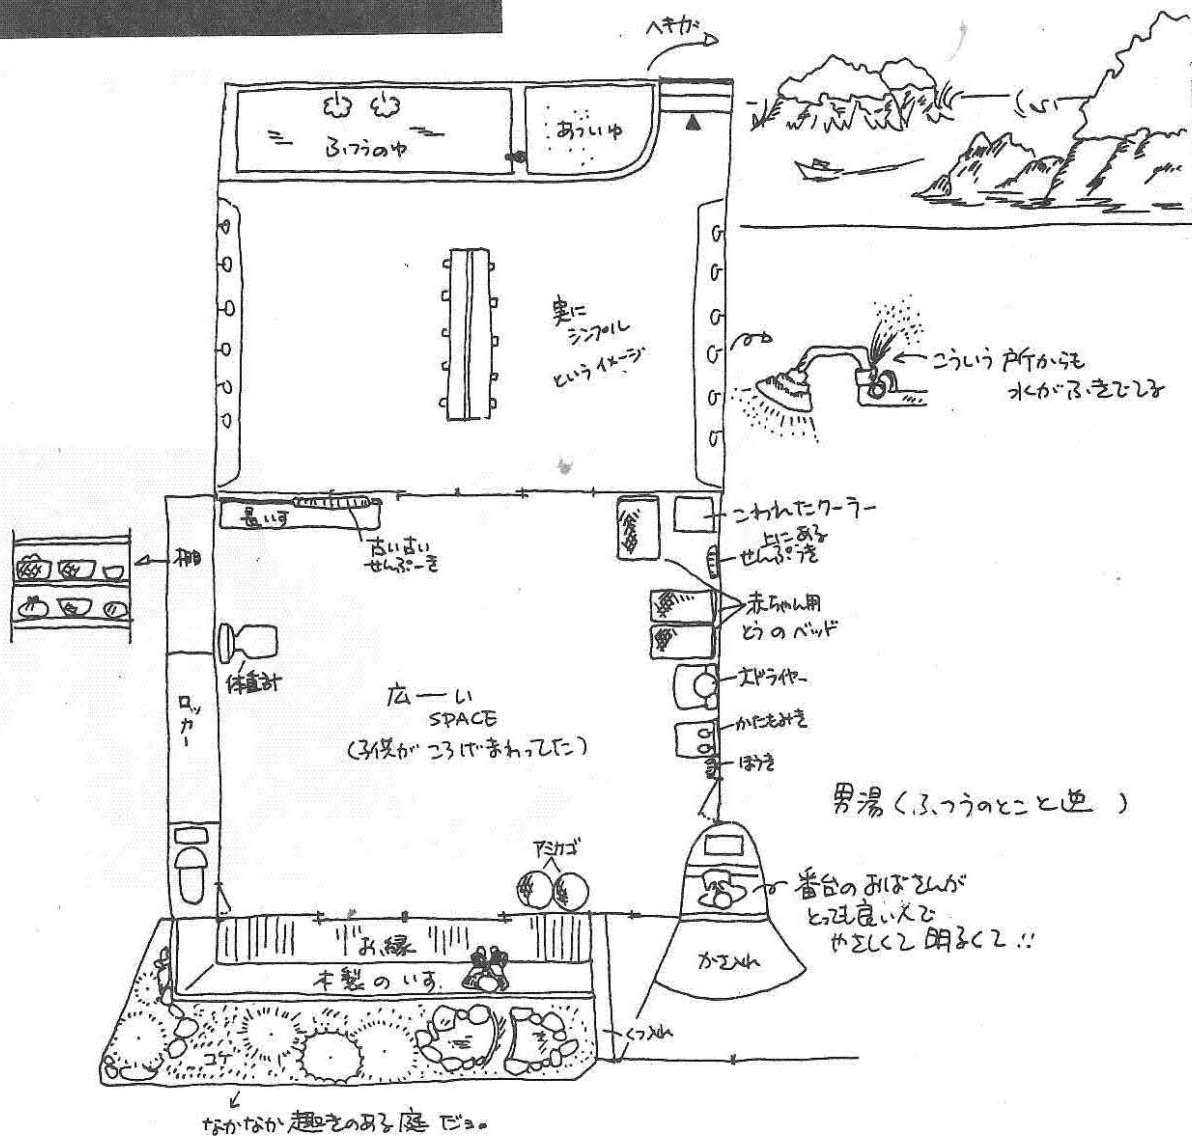 ヘキガ
ふつうのゆ
あついゆ
実に
シンプル
というイメージ
こういう所からも
水がふきでてる
長いす
古い古い
せんぷーき
こわれたクーラー
上にある
せんぷうき
棚
赤ちゃん用
とうのベッド
体重計
ロッカー
広ーい
SPACE
(子供がころげまわってた)
大ドライヤー
かたもみき
ほうき
男湯(ふつうのとこと逆)
アミカゴ
番台のおばさんが
とっても良い人で
やさしくて明るくて!!
お縁
木製のいす
かさ入れ
くつ入れ
コケ
なかなか趣きのある庭だョ。